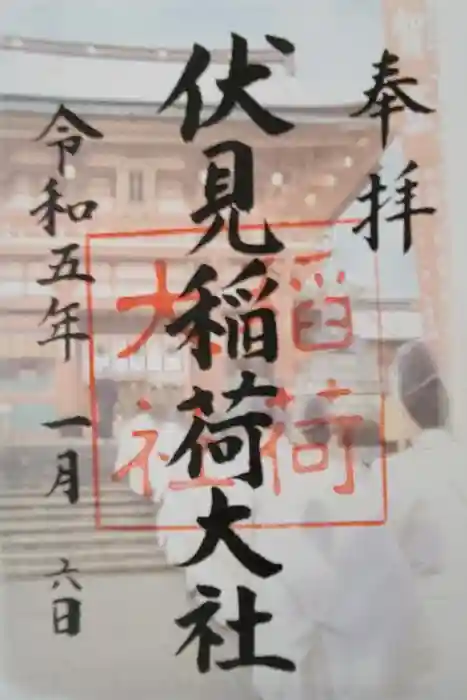 奉拝
伏見稲荷大社
稲荷
大社
令和五年 一月 六日